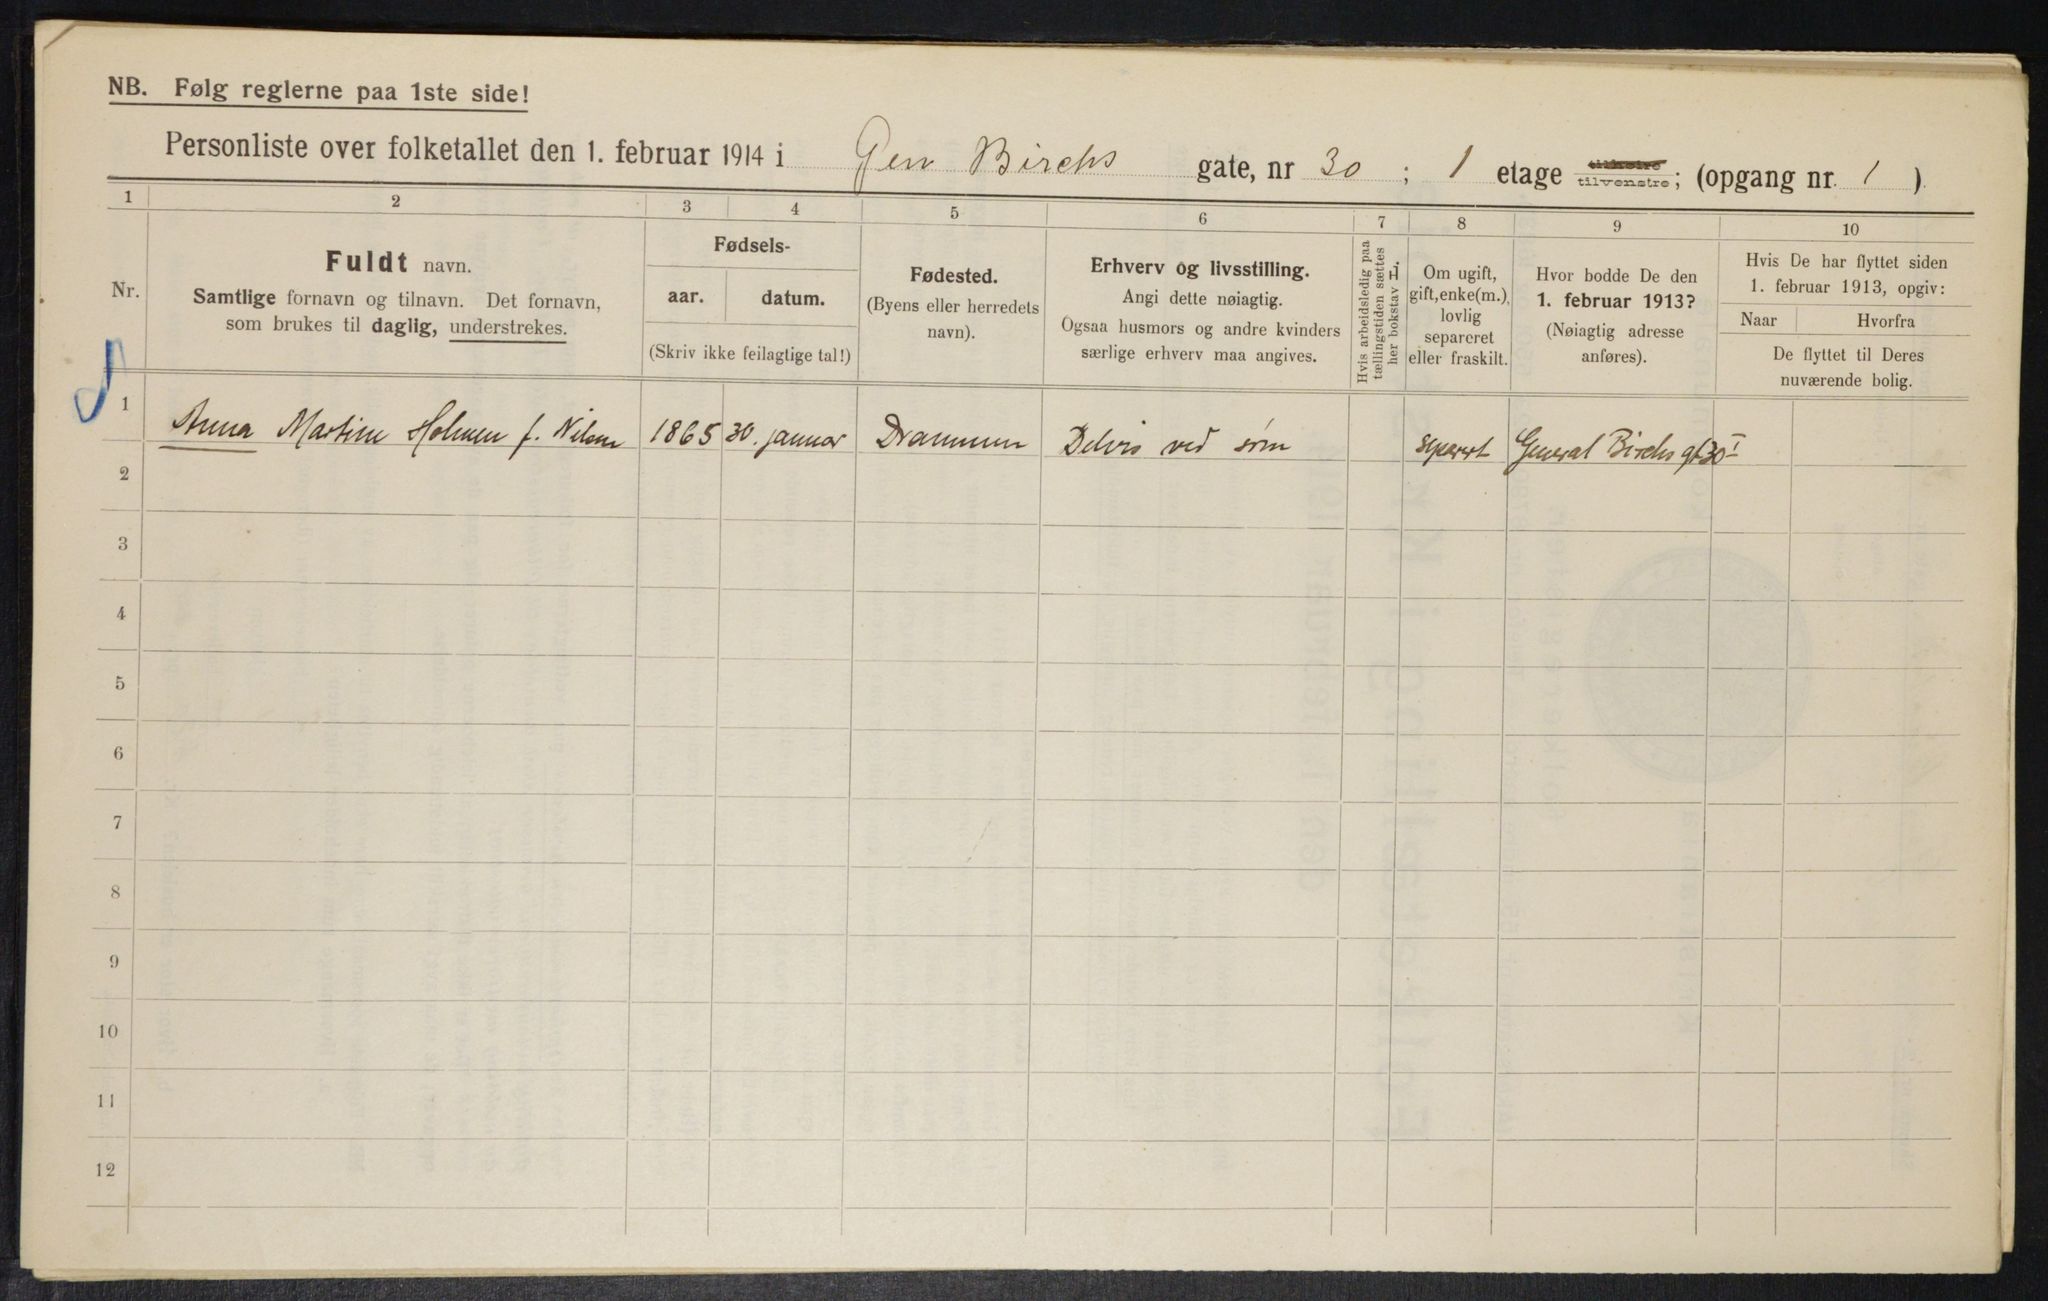 NB. Følg reglerne paa 1ste side!
Personliste over folketallet den 1. februar 1914 i Gen Birchs gate, nr 30 ; 1 etage tilvenstre; (opgang nr. 1 )
1 2 3 4 5 6 7 8 9 10
Nr.
Fuldt navn.
Samtlige fornavn og tilnavn. Det fornavn,
som brukes til daglig, understrekes.
Fødsels-
aar. datum.
(Skriv ikke feilagtige tal!)
Fødested.
(Byens eller herredets
navn).
Erhverv og livsstilling.
Angi dette nøiagtig.
Ogsaa husmors og andre kvinders
særlige erhverv maa angives.
Hvis arbeidsledig paa
tællingstiden sættes
her bokstav L.
Om ugift,
gift, enke(m.),
lovlig
separeret
eller fraskilt.
Hvor bodde De den
1. februar 1913?
(Nøiagtig adresse
anføres).
Hvis De har flyttet siden
1. februar 1913, opgiv:
Naar Hvorfra
De flyttet til Deres
nuværende bolig.
1 Anna Martine Holmen f. Nilsen 1865 30. januar Drammen Delvis ved søm separert General Birchs gt 30 I
2
3
4
5
6
7
8
9
10
11
12